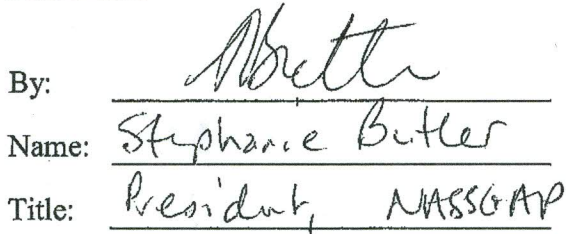 By:
Name: Stephanie Butler
Title: President, NASSGAP